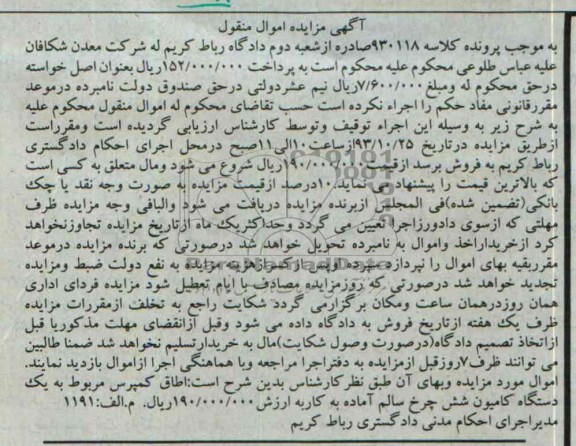 آگهی مزایده اموال منقول
به موجب پرونده کلاسه ۹۳۰۱۱۸صادره ازشعبه دوم دادگاه رباط کریم له شرکت معدن شکافان
علیه عباس طلوعی محکوم علیه محکوم است به پرداخت ۱۵۲/۰۰۰/۰۰۰ریال بعنوان اصل خواسته
درحق محکوم له ومبلغ۷/۶۰۰/۰۰۰ریال نیم عشردولتی درحق صندوق دولت نامبرده درموعد
مقررقانونی مفاد حکم را اجراء نکرده است حسب تقاضای محکوم له اموال منقول محکوم علیه
به شرح زیر به وسیله این اجراء توقیف وتوسط کارشناس ارزیابی گردیده است ومقرراست
ازطریق مزایده درتاریخ ۹۳/۱۰/۲۵ازساعت۱۰الی۱۱صبح درمحل اجرای احکام دادگستری
رباط کریم به فروش برسد ازقیمت ۱۹۰/۰۰۰/۰۰۰ریال شروع می شود ومال متعلق به کسی است
که بالاترین قیمت را پیشنهاد می نماید.۱۰درصد ازقیمت مزایده به صورت وجه نقد یا چک
بانکی(تضمین شده)فی المجلس ازبرنده مزایده دریافت می شود والباقی وجه مزایده ظرف
مهلتی که ازسوی دادورزاجرا تعیین می گردد وحداکثریک ماه ازتاریخ مزایده تجاوزنخواهد
کرد ازخریداراخذ واموال به نامبرده تحویل خواهد شد درصورتی که برنده مزایده درموعد
مقرربقیه بهای اموال را نپردازد سپرده اوپس ازکسرهزینه مزایده به نفع دولت ضبط ومزایده
تجدید خواهد شد درصورتی که روزمزایده مصادف با ایام تعطیل شود مزایده فردای اداری
همان روزدرهمان ساعت ومکان برگزارمی گردد شکایت راجع به تخلف ازمقررات مزایده
ظرف یک هفته ازتاریخ فروش به دادگاه داده می شود وقبل ازانقضای مهلت مذکوریا قبل
ازاتخاذ تصمیم دادگاه(درصورت وصول شکایت)مال به خریدارتسلیم نخواهد شد ضمنا طالبین
می توانند ظرف۷روزقبل ازمزایده به دفتراجرا مراجعه وبا هماهنگی اجرا ازاموال بازدید نمایند.
اموال مورد مزایده وبهای آن طبق نظرکارشناس بدین شرح است:اطاق کمپرس مربوط به یک
دستگاه کامیون شش چرخ سالم آماده به کاربه ارزش ۱۹۰/۰۰۰/۰۰۰ریال. م.الف:۱۱۹۱
مدیراجرای احکام مدنی دادگستری رباط کریم